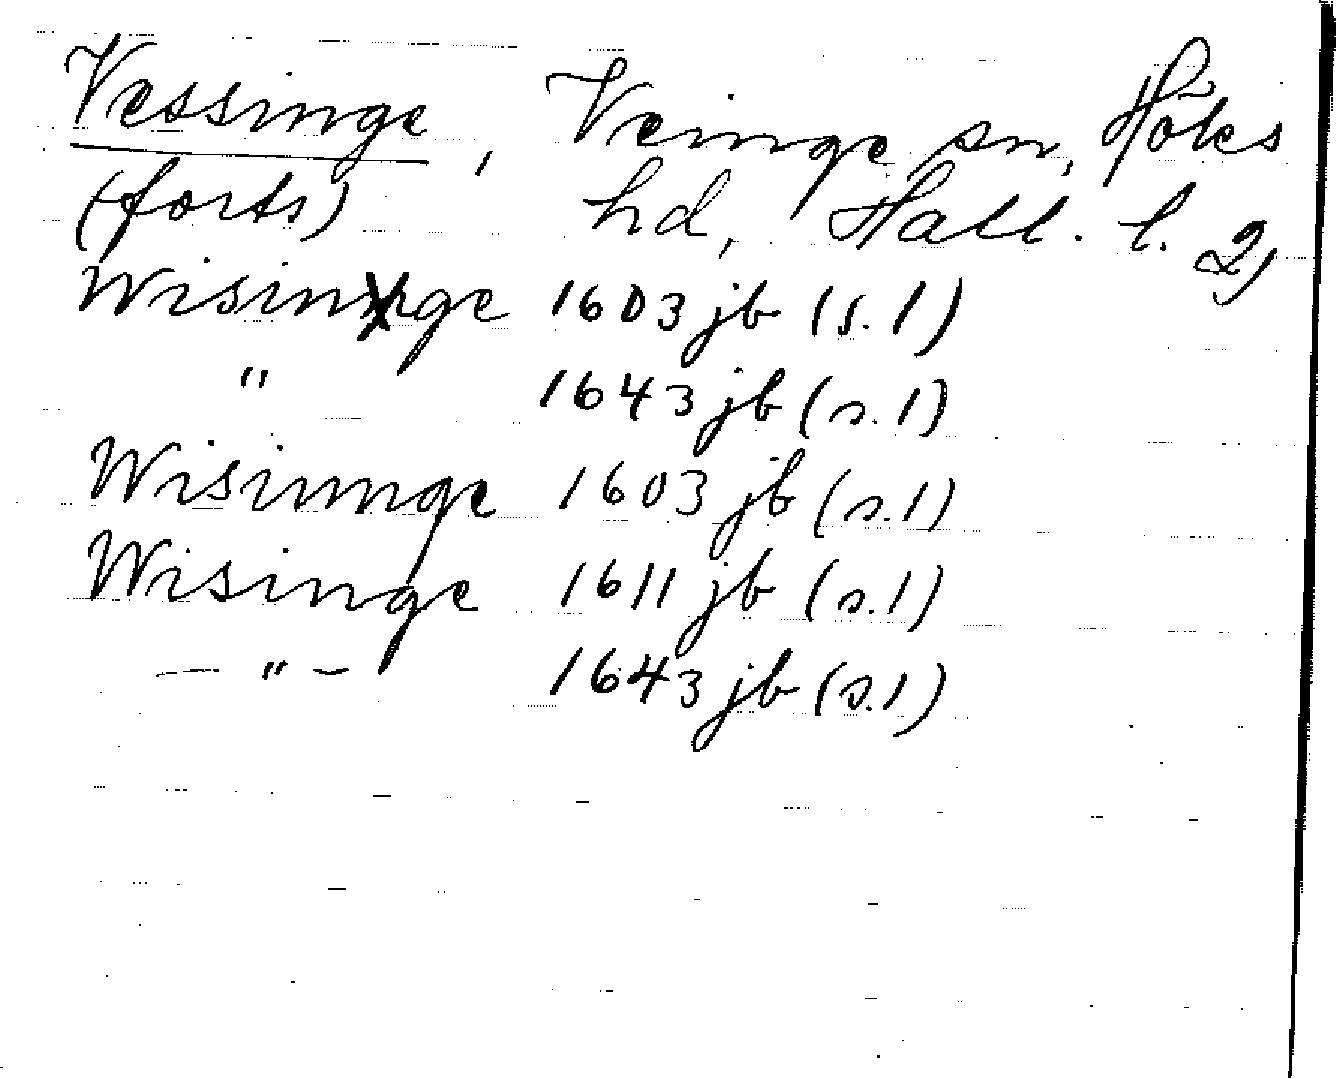 Vessinge, Veinge sn, Höks
(forts) hd, Hall. l. 2)
Wisinge 1603 jb (s. 1)
" 1643 jb (s. 1)
Wisinnge 1603 jb (s. 1)
Wisinge 1611 jb (s. 1)
— " — 1643 jb (s. 1)